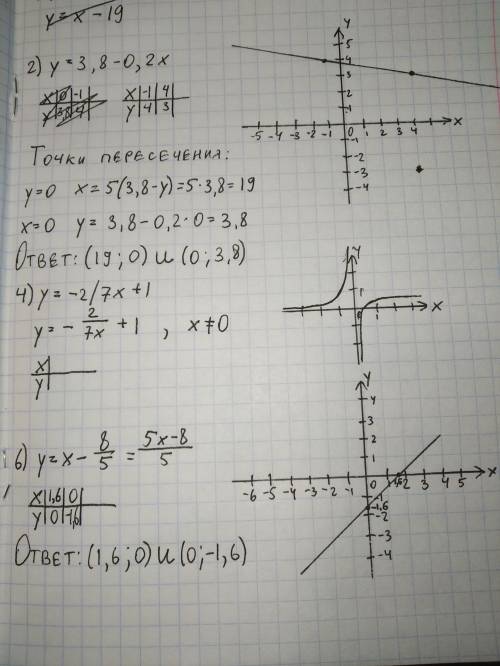 y = x - 19
2) y = 3,8 - 0,2x
x | 0 | -1
y | 3,8 | 4
x | -1 | 4
y | 4 | 3
Точки пересечения:
y=0 x = 5(3,8-y) = 5·3,8 = 19
x=0 y = 3,8 - 0,2·0 = 3,8
Ответ: (19; 0) и (0; 3,8)
4) y = -2/7x + 1
y = - 2/7x + 1 , x ≠ 0
x
y
6) y = x - 8/5 = 5x-8/5
x | 1,6 | 0
y | 0 | -1,6
Ответ: (1,6; 0) и (0; -1,6)
y
5
4
3
2
1
-5 -4 -3 -2 -1 0 1 2 3 4 x
-1
-2
-3
-4
y
1
0 1 x
y
4
3
2
1
-6 -5 -4 -3 -2 -1 0 1 1,6 2 3 4 5 x
-1
-1,6
-2
-3
-4